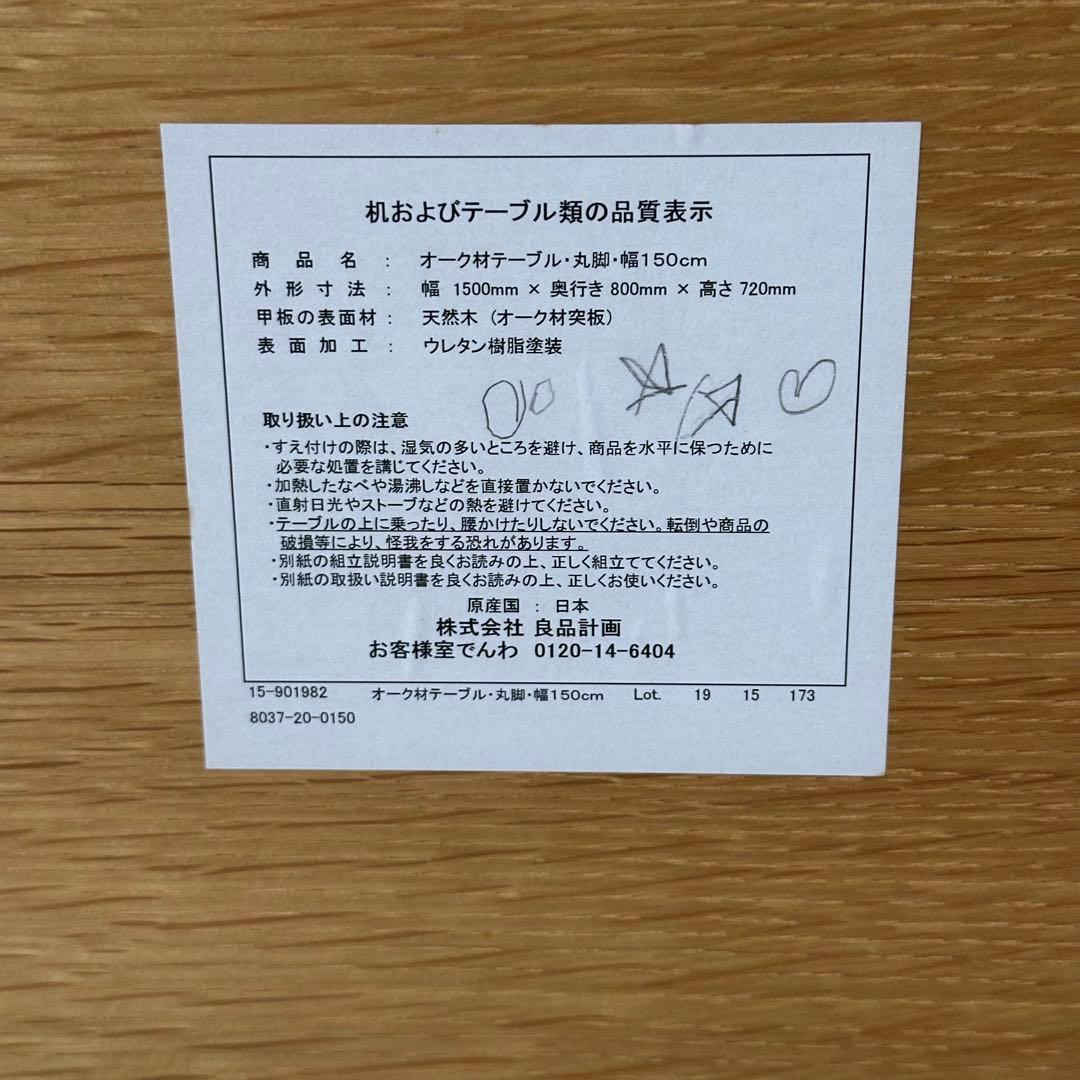 机およびテーブル類の品質表示
商品名 : オーク材テーブル・丸脚・幅150cm
外形寸法 : 幅 1500mm × 奥行き 800mm × 高さ 720mm
甲板の表面材 : 天然木 (オーク材突板)
表面加工 : ウレタン樹脂塗装
取り扱い上の注意
・すえ付けの際は、湿気の多いところを避け、商品を水平に保つために
必要な処置を講じてください。
・加熱したなべや湯沸しなどを直接置かないでください。
・直射日光やストーブなどの熱を避けてください。
・テーブルの上に乗ったり、腰かけたりしないでください。転倒や商品の
破損等により、怪我をする恐れがあります。
・別紙の組立説明書を良くお読みの上、正しく組立ててください。
・別紙の取扱い説明書を良くお読みの上、正しくお使いください。
原産国 : 日本
株式会社 良品計画
お客様室でんわ 0120-14-6404
15-901982 オーク材テーブル・丸脚・幅150cm Lot. 19 15 173
8037-20-0150